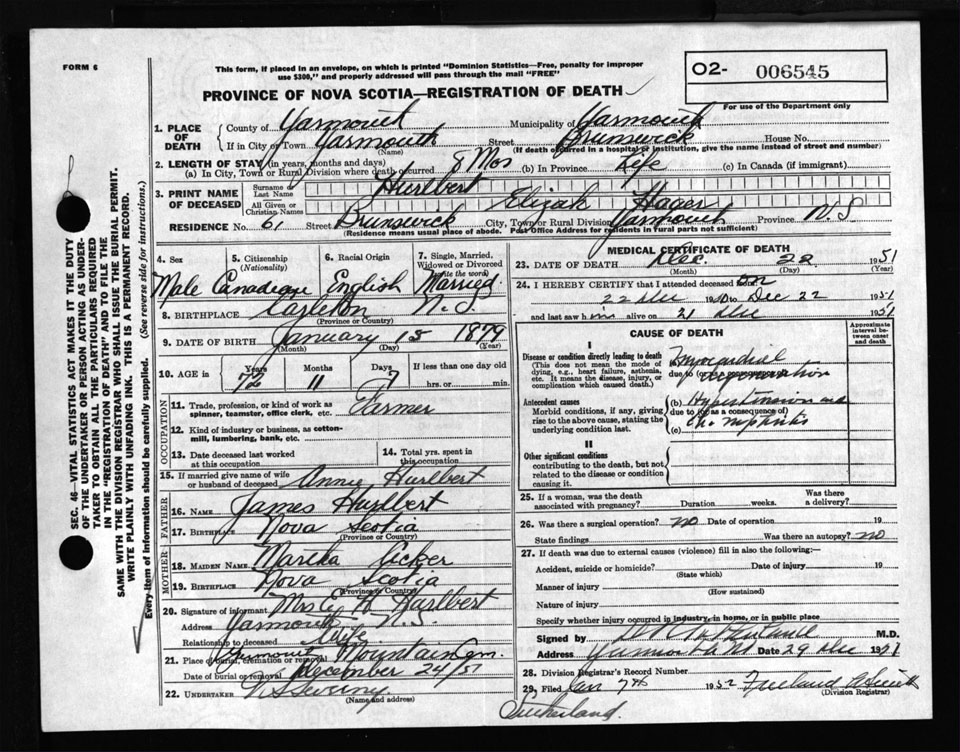 FORM 6
This form, if placed in an envelope, on which is printed "Dominion Statistics—Free, penalty for improper
use $300," and properly addressed will pass through the mail "FREE"
O2- 006545
PROVINCE OF NOVA SCOTIA—REGISTRATION OF DEATH
For use of the Department only
1. PLACE OF DEATH
County of Yarmouth Municipality of Yarmouth
If in City or Town Yarmouth Street Brunswick House No.
(Name) (If death occurred in a hospital or institution, give the name instead of street and number)
2. LENGTH OF STAY (in years, months and days)
(a) In City, Town or Rural Division where death occurred 8 Mos (b) In Province Life (c) In Canada (if immigrant)
3. PRINT NAME OF DECEASED
Surname or Last Name Hurlbert
All Given or Christian Names Elijah Hager
RESIDENCE No. 61 Street Brunswick City, Town or Rural Division Yarmouth Province N.S.
(Residence means usual place of abode. Post Office Address for residents in rural parts not sufficient)
4. Sex 5. Citizenship (Nationality) 6. Racial Origin 7. Single, Married, Widowed or Divorced (write the word)
Male Canadian English Married
8. BIRTHPLACE Carleton N.S.
(Province or Country)
9. DATE OF BIRTH January 15 1879
(Month) (Day) (Year)
10. AGE in Years Months Days If less than one day old
72 11 7 hrs. or min.
OCCUPATION
11. Trade, profession, or kind of work as spinner, teamster, office clerk, etc. Farmer
12. Kind of industry or business, as cotton-mill, lumbering, bank, etc.
13. Date deceased last worked at this occupation
14. Total yrs. spent in this occupation
15. If married give name of wife or husband of deceased Annie Hurlbert
FATHER
16. Name James Hurlbert
17. Birthplace Nova Scotia
(Province or Country)
MOTHER
18. Maiden Name Martha
19. Birthplace Nova Scotia
(Province or Country)
20. Signature of informant Mrs E H Hurlbert
Address Yarmouth N.S.
Relationship to deceased Wife
21. Place of burial, cremation or removal Yarmouth Mountain Cem.
Date of burial or removal December 24/51
22. UNDERTAKER V S Sweeny
(Name and address)
MEDICAL CERTIFICATE OF DEATH
23. DATE OF DEATH Dec. 22 1951
(Month) (Day) (Year)
24. I HEREBY CERTIFY that I attended deceased from
22 Dec 1950 to Dec 22 1951
and last saw him alive on 21 Dec 1951
CAUSE OF DEATH
Approximate interval between onset and death
I
Disease or condition directly leading to death
(This does not mean the mode of dying, e.g., heart failure, asthenia, etc. It means the disease, injury, or complication which caused death.)
(a) Myocardial degeneration
due to (or as a consequence of)
Antecedent causes
Morbid conditions, if any, giving rise to the above cause, stating the underlying condition last.
(b)
due to (or as a consequence of)
(c) Ch. nephritis
II
Other significant conditions
contributing to the death, but not related to the disease or condition causing it.
25. If a woman, was the death associated with pregnancy? Duration weeks. Was there a delivery?
26. Was there surgical operation? no Date of operation 19
State findings Was there an autopsy? no
27. If death was due to external causes (violence) fill in also the following:—
Accident, suicide or homicide? Date of injury 19
(State which)
Manner of injury
(How sustained)
Nature of injury
Specify whether injury occurred in industry, in home, or in public place
Signed by M.D.
Address Yarmouth NS Date 29 Dec 1951
28. Division Registrar's Record Number
29. Filed Jan 7th 1952
(Division Registrar)
Sutherland.
SEC. 46—VITAL STATISTICS ACT MAKES IT THE DUTY
OF THE UNDERTAKER OR PERSON ACTING AS UNDER-
TAKER TO OBTAIN ALL THE PARTICULARS REQUIRED
IN THE "REGISTRATION OF DEATH" AND TO FILE THE
SAME WITH THE DIVISION REGISTRAR WHO SHALL ISSUE THE BURIAL PERMIT.
WRITE PLAINLY WITH UNFADING INK. THIS IS A PERMANENT RECORD.
Every item of information should be carefully supplied. (See reverse side for instructions.)